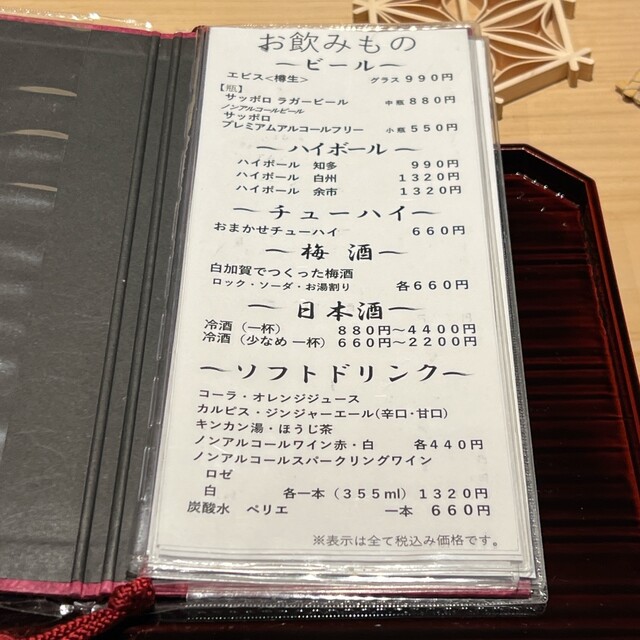 お飲みもの
～ビール～
エビス<樽生> グラス 990円
【瓶】
サッポロ ラガービール 中瓶 880円
ノンアルコールビール
サッポロ
プレミアムアルコールフリー 小瓶 550円
～ハイボール～
ハイボール 知多 990円
ハイボール 白州 1320円
ハイボール 余市 1320円
～チューハイ～
おまかせチューハイ 660円
～梅 酒～
白加賀でつくった梅酒
ロック・ソーダ・お湯割り 各660円
～日本酒～
冷酒（一杯） 880円～4400円
冷酒（少なめ 一杯） 660円～2200円
～ソフトドリンク～
コーラ・オレンジジュース
カルピス・ジンジャーエール(辛口・甘口)
キンカン湯・ほうじ茶
ノンアルコールワイン赤・白 各440円
ノンアルコールスパークリングワイン
ロゼ
白 各一本（355ml）1320円
炭酸水 ペリエ 一本 660円
※表示は全て税込み価格です。